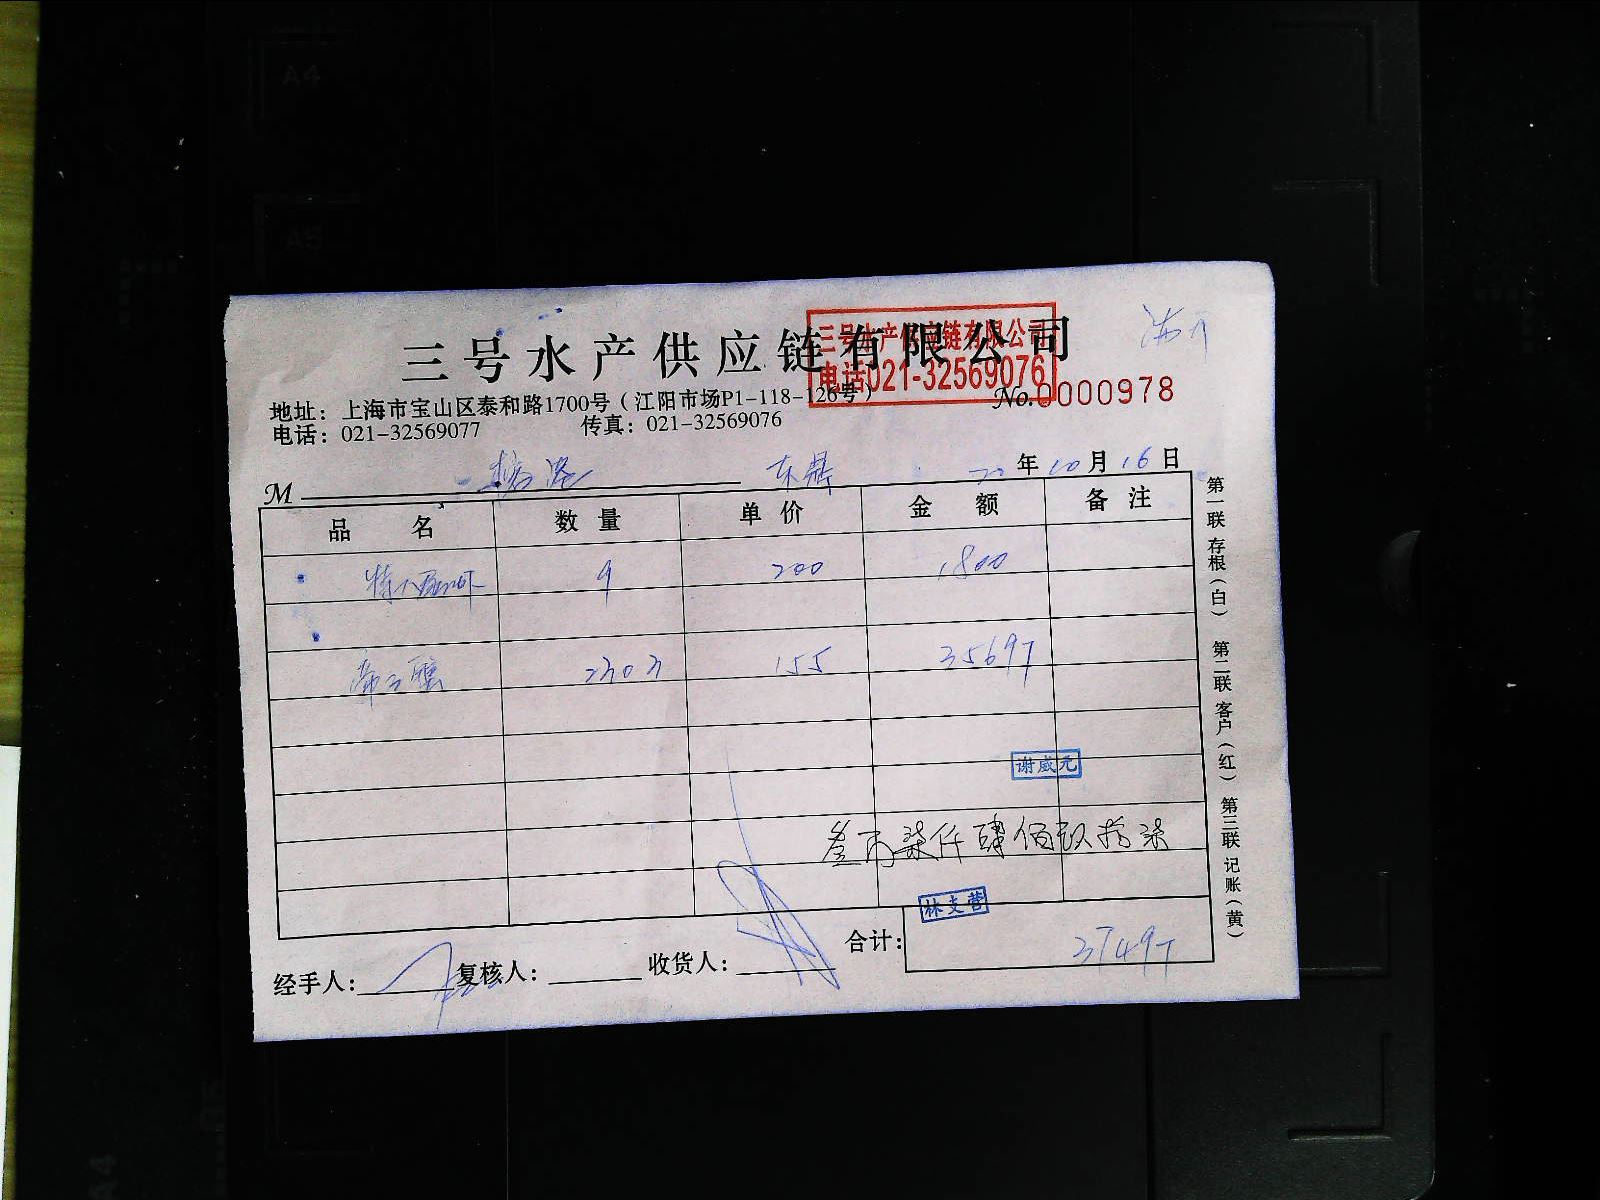 三号水产供应链有限公司
三号水产供应链有限公司
电话021-32569076
地址：上海市宝山区泰和路1700号（江阳市场P1-118-126号）
No.0000978
电话：021-32569077 传真：021-32569076
M 东 20年10月16日
品名 数量 单价 金额 备注
9 200 1800
帝王 230.3 155 35697
谢威元
叁万柒仟肆佰玖拾柒
林支营
合计：37497
经手人： 复核人： 收货人：
第一联 存根（白） 第二联 客户（红） 第三联 记账（黄）
A4
A5
A4